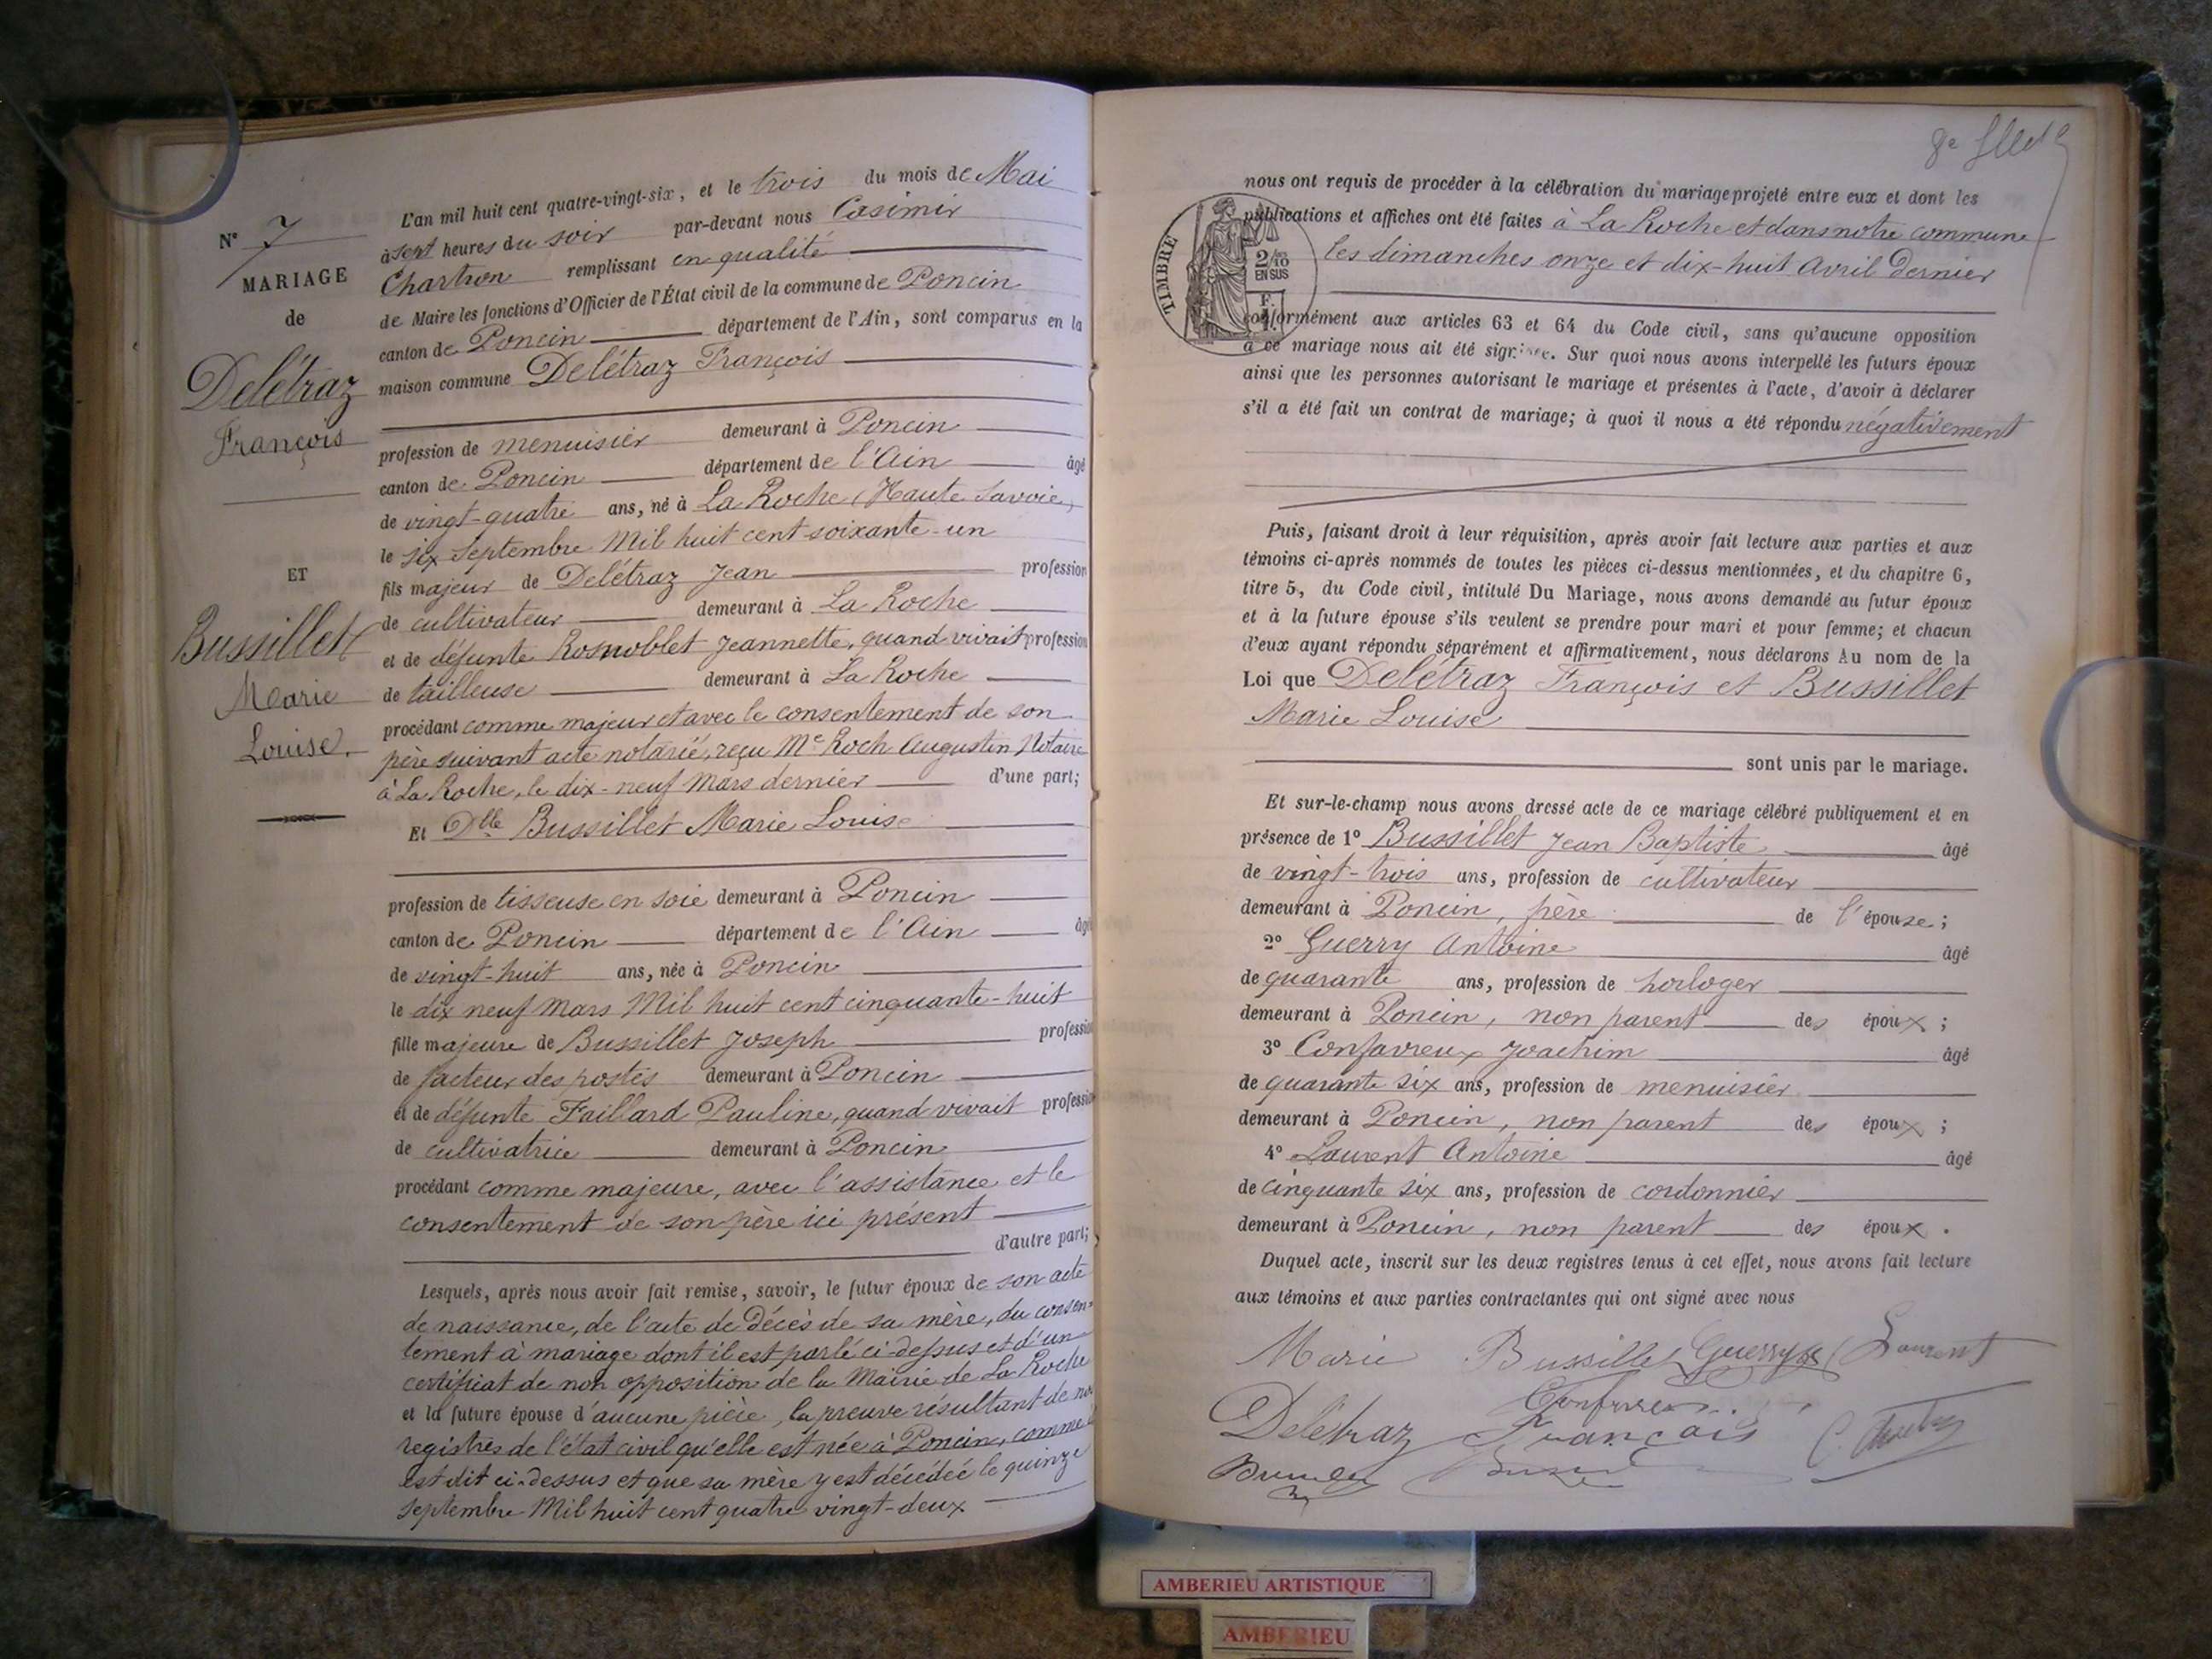 N° 7
MARIAGE
de
Delétraz
François
ET
Bussillet
Marie
Louise.
L'an mil huit cent quatre-vingt-six, et le trois du mois de Mai
à sept heures du soir par-devant nous Casimir
Chartron remplissant en qualité
de Maire les fonctions d'Officier de l'État civil de la commune de Poncin
canton de Poncin département de l'Ain, sont comparus en la
maison commune Delétraz François
profession de menuisier demeurant à Poncin
canton de Poncin département de l'Ain âgé
de vingt-quatre ans, né à La Roche (Haute Savoie)
le six Septembre Mil huit cent soixante-un
fils majeur de Delétraz Jean profession
de cultivateur demeurant à La Roche
et de défunte Rosnoblet Jeannette, quand vivait profession
de tailleuse demeurant à La Roche
procédant comme majeur et avec le consentement de son
père suivant acte notarié, reçu Me Roch Augustin Notaire
à La Roche, le dix-neuf Mars dernier d'une part;
Et Dlle Bussillet Marie Louise
profession de tisseuse en soie demeurant à Poncin
canton de Poncin département de l'Ain âgé
de vingt-huit ans, née à Poncin
le dix neuf Mars Mil huit cent cinquante-huit
fille majeure de Bussillet Joseph profession
de facteur des postes demeurant à Poncin
et de défunte Faillard Pauline, quand vivait profession
de cultivatrice demeurant à Poncin
procédant comme majeure, avec l'assistance et le
consentement de son père ici présent
d'autre part;
Lesquels, après nous avoir fait remise, savoir, le futur époux de son acte
de naissance, de l'acte de décès de sa mère, du consen=
tement à mariage dont il est parlé ci-dessus et d'un
certificat de non opposition de la Mairie de La Roche
et la future épouse d'aucune pièce, la preuve résultant de nos
registres de l'état civil qu'elle est née à Poncin, comme il
est dit ci-dessus et que sa mère y est décédée le quinze
Septembre Mil huit cent quatre vingt-deux
8e
nous ont requis de procéder à la célébration du mariage projeté entre eux et dont les
publications et affiches ont été faites à La Roche et dans notre commune
les dimanches onze et dix-huit Avril dernier
TIMBRE
2/10
EN SUS
F.
conformément aux articles 63 et 64 du Code civil, sans qu'aucune opposition
à ce mariage nous ait été signifiée. Sur quoi nous avons interpellé les futurs époux
ainsi que les personnes autorisant le mariage et présentes à l'acte, d'avoir à déclarer
s'il a été fait un contrat de mariage; à quoi il nous a été répondu négativement
Puis, faisant droit à leur réquisition, après avoir fait lecture aux parties et aux
témoins ci-après nommés de toutes les pièces ci-dessus mentionnées, et du chapitre 6,
titre 5, du Code civil, intitulé Du Mariage, nous avons demandé au futur époux
et à la future épouse s'ils veulent se prendre pour mari et pour femme; et chacun
d'eux ayant répondu séparément et affirmativement, nous déclarons Au nom de la
Loi que Delétraz François et Bussillet
Marie Louise
sont unis par le mariage.
Et sur-le-champ nous avons dressé acte de ce mariage célébré publiquement et en
présence de 1° Bussillet Jean Baptiste âgé
de vingt-trois ans, profession de cultivateur
demeurant à Poncin, frère de l'épouse;
2° Guerry Antoine âgé
de quarante ans, profession de horloger
demeurant à Poncin, non parent des époux;
3° Confavreux Joachim âgé
de quarante six ans, profession de menuisier
demeurant à Poncin, non parent des époux;
4° Laurent Antoine âgé
de cinquante six ans, profession de cordonnier
demeurant à Poncin, non parent des époux.
Duquel acte, inscrit sur les deux registres tenus à cet effet, nous avons fait lecture
aux témoins et aux parties contractantes qui ont signé avec nous
Marie Bussillet Guerry Laurent
Delétraz François
AMBERIEU ARTISTIQUE
AMBERIEU